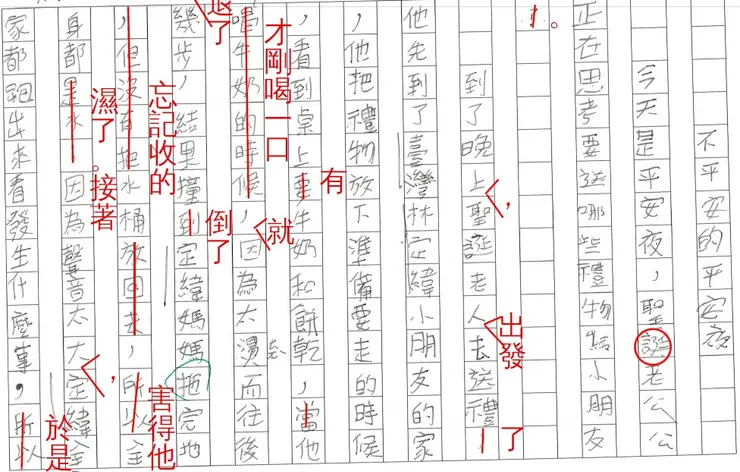 不平安的平安夜
今天是平安夜，聖誕老公公
正在思考要送哪些禮物給小朋友
。
到了晚上聖誕老人去送禮
，
出發
了
他先到了臺灣林定緯小朋友的家
，他把禮物放下準備要走的時候
，看到桌上牛奶和餅乾，當他
有
喝牛奶的時候，因為太燙而往後
才剛喝一口
就
幾步，結果撞到定緯媽媽拖完地
退了
倒了
，但沒有把水桶放回去，所以全
忘記收的
害得他
身都是水 因為聲音太大定緯全
濕了。接著
，
家都跑出來看發生什麼事，所以
於是